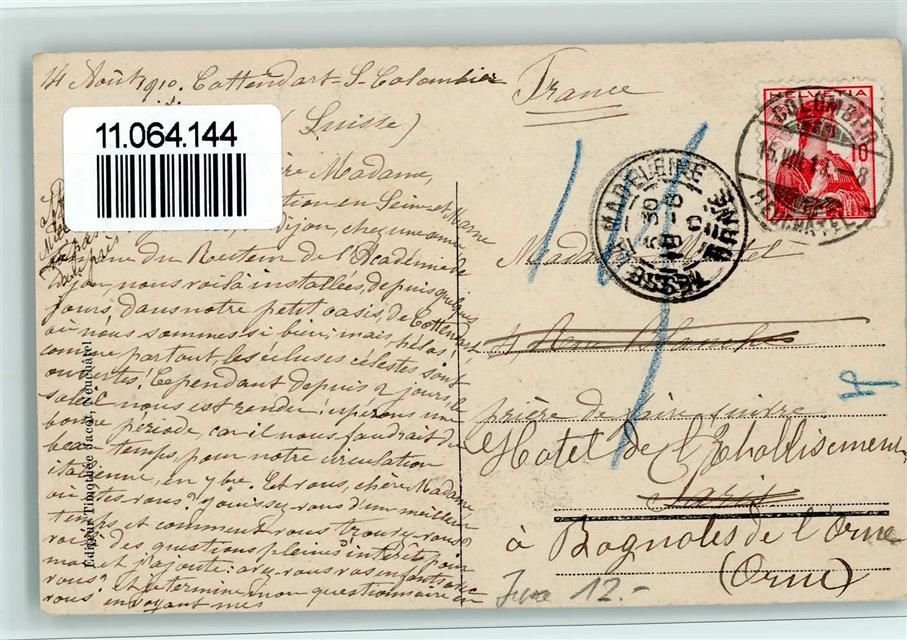 14 Août 1910. Cottendart-S-Colombier
(Suisse)
11.064.144
Madame,
en Seine et Marne
Dijon, chez une amie
du Recteur de l'Académie de
Dijon, nous voilà installées, depuis quelques
jours, dans notre petit oasis, de Cottendart,
où nous sommes si bien; mais, hélas!
comme partout les écluses célestes sont
ouvertes! Cependant depuis 2 jours, le
soleil nous est rendu: espérons une
bonne période, car il nous faudrait du
beau temps, pour notre circulation
italienne, en 7bre. Et vous, chère Madame
où êtes-vous? Jouissez-vous d'un meilleur
temps, et comment vous trouvez-vous?
voilà des questions pleines d'intérêt pour
moi et j'ajoute: avez-vous vos enfants avec
vous? et termine mon questionnaire en
vous envoyant mes
Editeur Timothée Jacot, Neuchâtel
France
HELVETIA
10
COLOMBIER
15.VIII.10.-8
NEUCHATEL
TESSÉ LA MADELEINE
ORNE
5 30
16 - 8
10
Madame
Rue Blanche
prière de faire suivre
Hotel de l'Etablissement
Paris
à Bagnoles de l'Orne
(Orne)
12.-